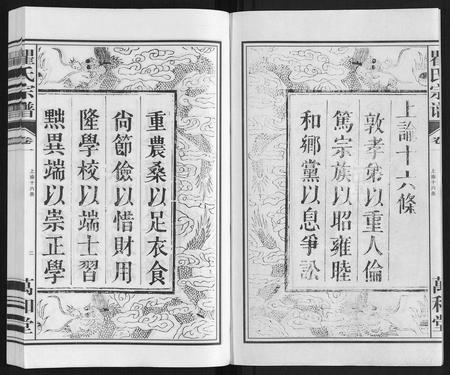 瞿氏宗譜
卷
上諭十六條
萬和堂
上諭十六條
敦孝弟以重人倫
篤宗族以昭雍睦
和鄉黨以息爭訟
重農桑以足衣食
尙節儉以惜財用
隆學校以端士習
黜異端以崇正學
瞿氏宗譜
卷
上諭十六條
二
萬和堂